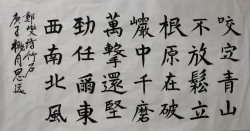 咬定青山
不放鬆立
根原在破
巖中千磨
萬擊還堅
勁任爾東
西南北風
鄭燮詩竹石